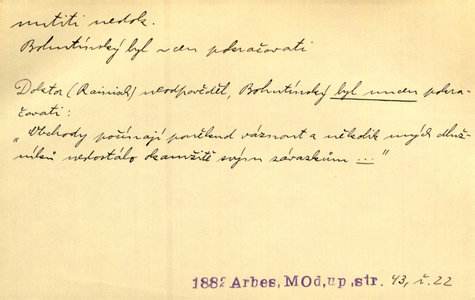 nutiti nedok.
Bohutínský byl nucen pokračovati
Doktor (Rainiš) neodpověděl, Bohutínský byl nucen pokra-
čovati:
„Obchody počínají poněkud váznout a několik mých dluž-
níků nedostálo okamžitě svým závazkům ..."
1882 Arbes, MOd, up, str. 43, ř. 22